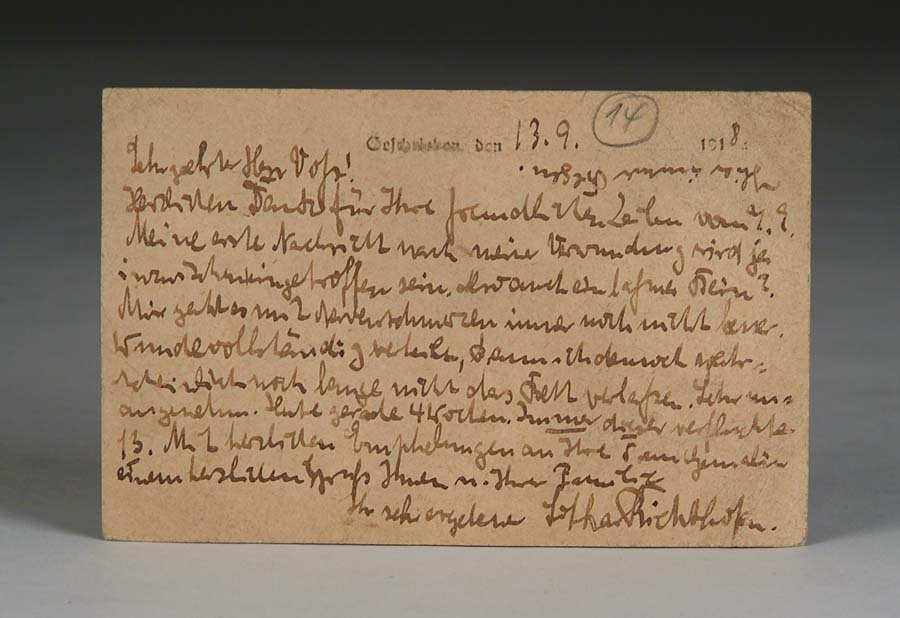 Geschrieben, den 13.9. 1918.
14
Sehr geehrter Herr Voß!
Herzlichen Dank für Ihre freundlichen Zeilen vom 7.9.
Meine erste Nachricht nach meiner Verwundung wird ja
inzwischen eingetroffen sein. Also auch ein lahmes Bein?
Mir geht es mit Nervenschmerzen immer noch nicht besser.
Wunde vollständig verheilt, kann ich dennoch wahr-
scheinlich noch lange nicht das Bett verlassen. Sehr un-
angenehm. Heute gerade 4 Wochen. Immer dieser verfluchte
13. Mit herzlichen Empfehlungen an Ihre Frau Gemahlin
einem herzlichen Gruß Ihnen u. Ihrer Familie
Ihr sehr ergebener Lothar Richthofen.